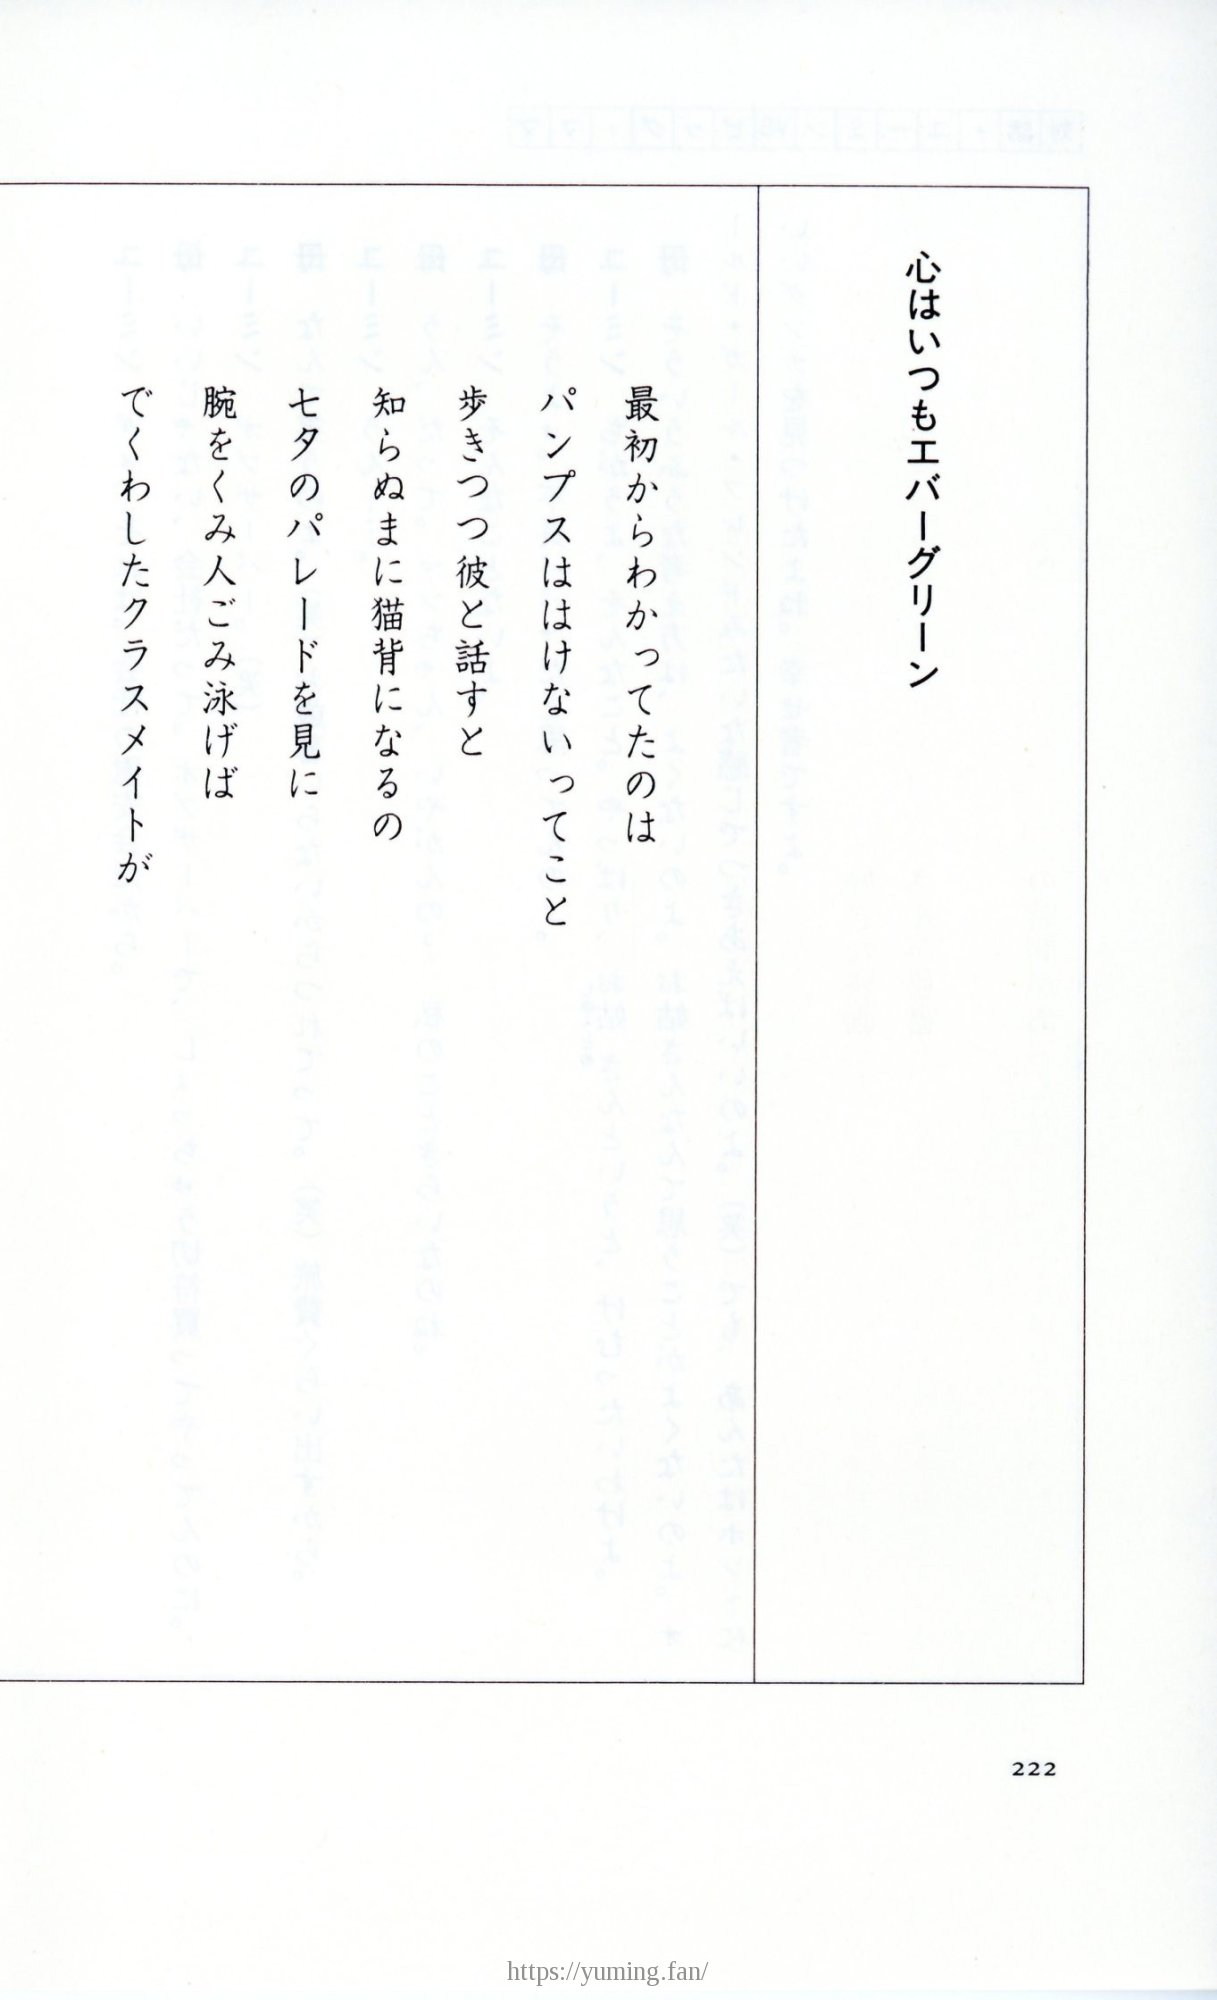 心はいつもエバーグリーン
最初からわかってたのは
パンプスははけないってこと
歩きつつ彼と話すと
知らぬまに猫背になるの
七夕のパレードを見に
腕をくみ人ごみ泳げば
でくわしたクラスメイトが
222
https://yuming.fan/